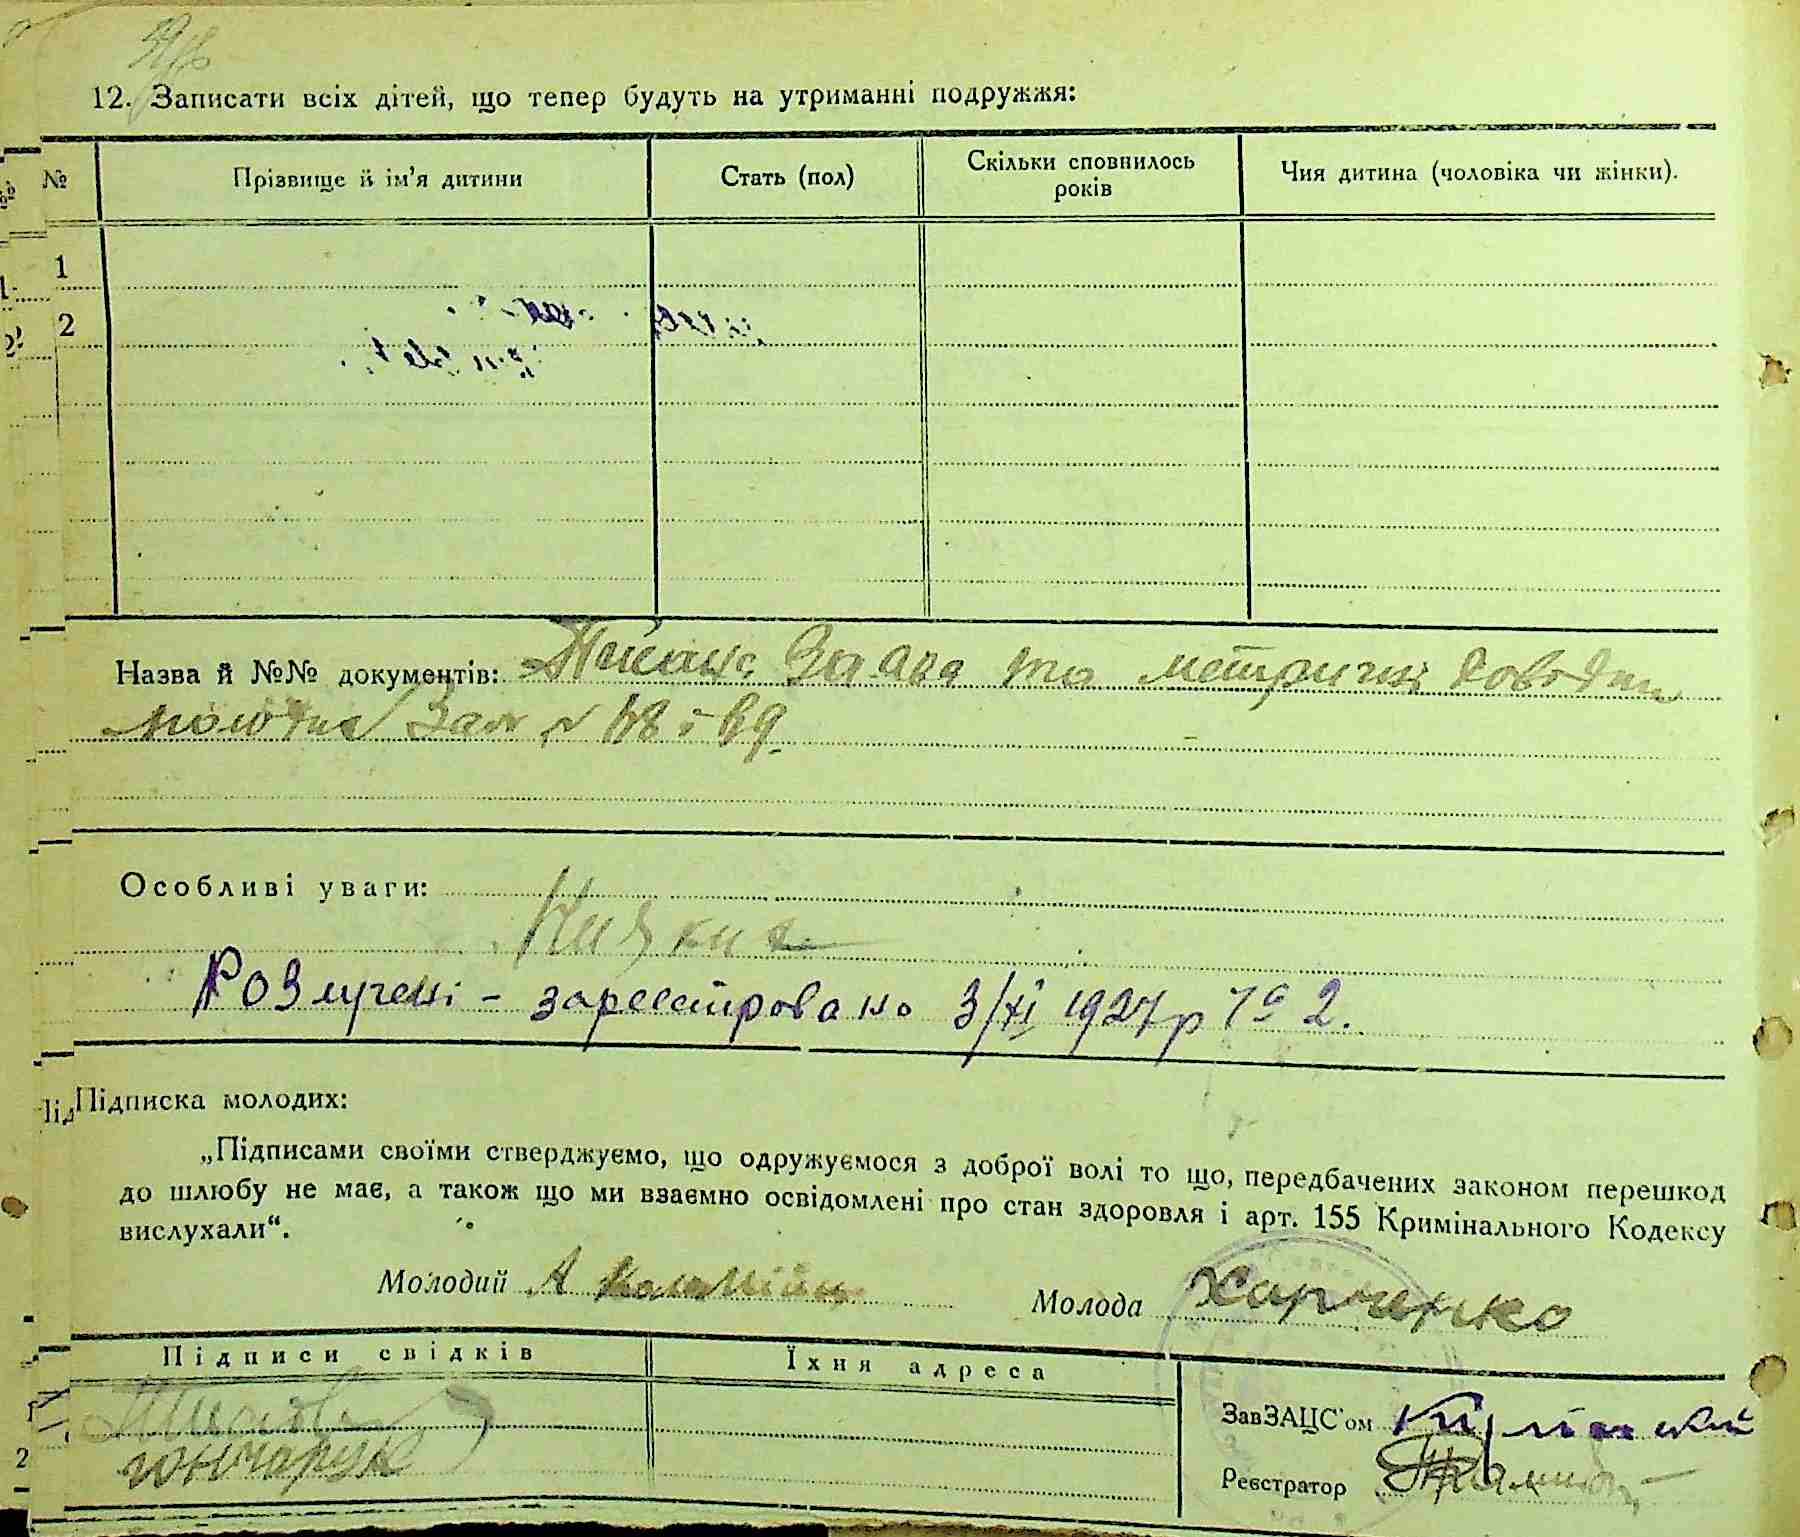 12. Записати всіх дітей, що тепер будуть на утриманні подружжя:
№ Прізвище й ім'я дитини Стать (пол) Скільки сповнилось років Чия дитина (чоловіка чи жінки).
1
2
Назва й №№ документів: Заява та метричні довідки
Зал № 68 і 69
Особливі уваги:
Розлучені - зареєстровано 3/XI 1927 р № 2.
Підписка молодих:
„Підписами своїми стверджуємо, що одружуємося з доброї волі то що, передбачених законом перешкод
до шлюбу не має, а також що ми взаємно освідомлені про стан здоровля і арт. 155 Кримінального Кодексу
вислухали“.
Молодий А Коломієць Молода Харченко
Підписи свідків Їхня адреса
ЗавЗАЦС'ом
Гончарук
2
Реєстратор